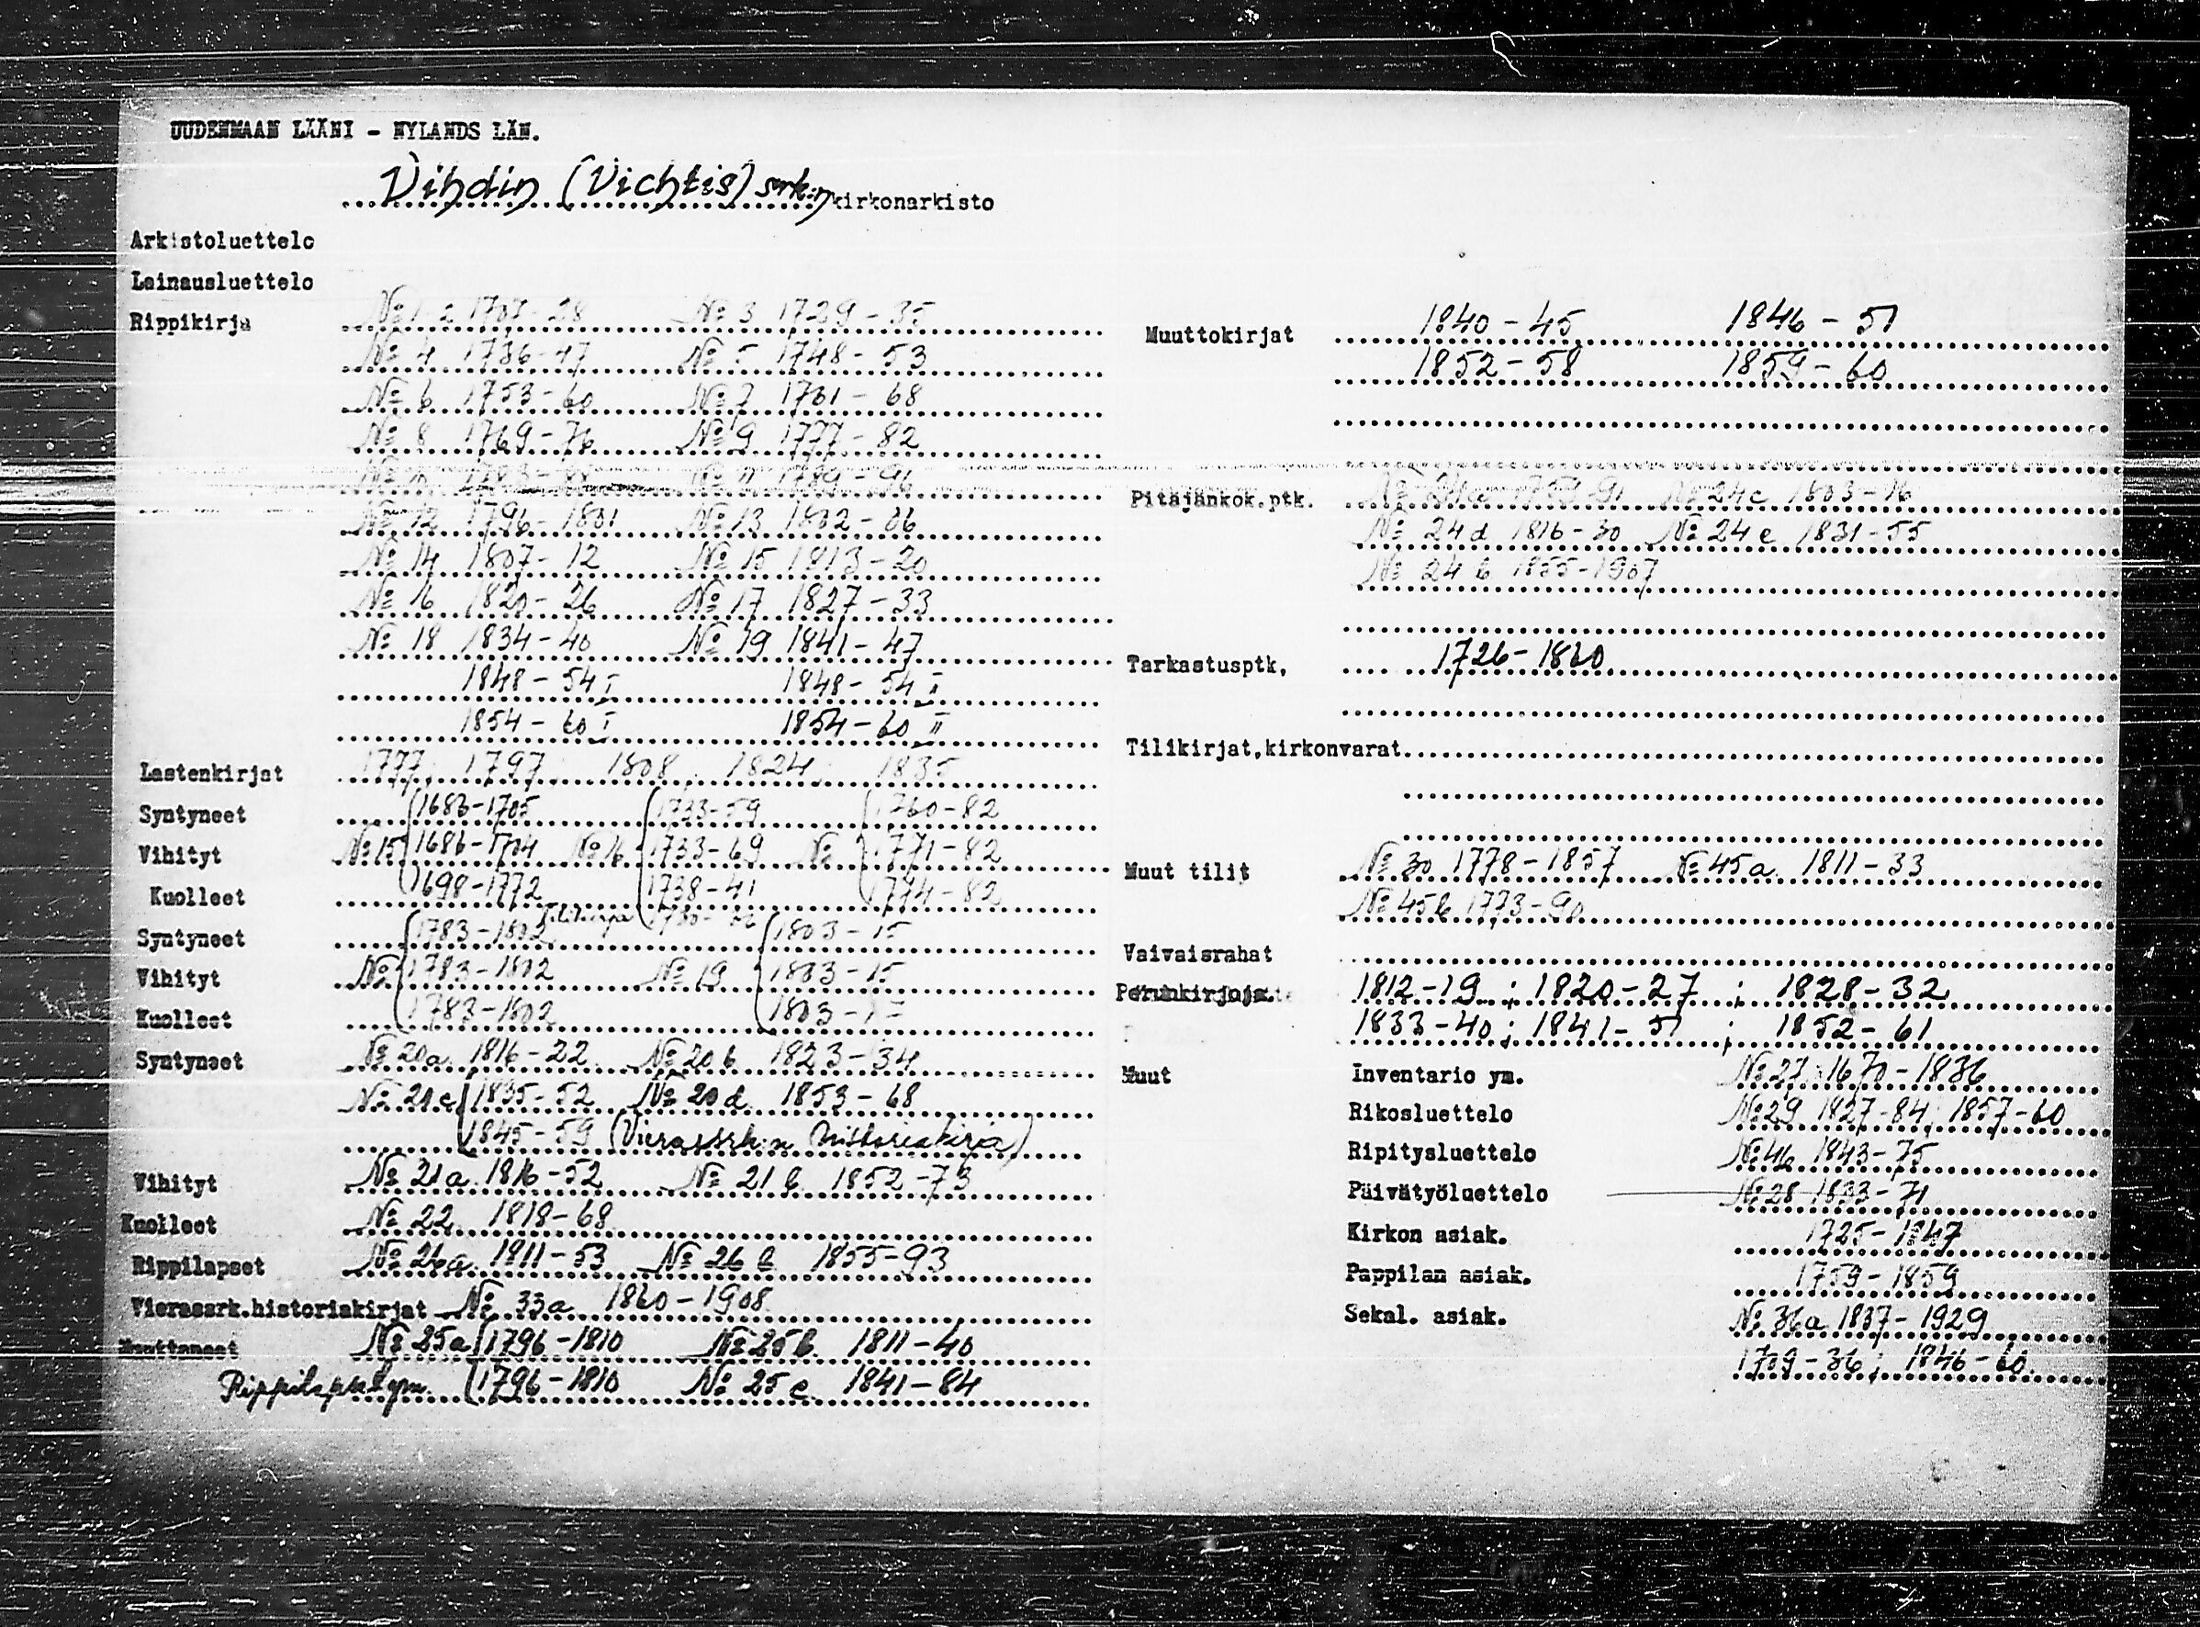 UUDENMAAN LÄÄNI - NYLANDS LÄN.
Vihdin (Vichtis) srk:n kirkonarkisto
Arkistoluettelo
Lainausluettelo
Rippikirja № 1-2 1707-28 № 3 1729-35
№ 4 1736-47 № 5 1748-53
№ 6 1753-60 № 7 1761-68
№ 8 1769-76 № 9 1777-82
№ 10 1783-88 № 11 1789-96
№ 12 1796-1801 № 13 1802-06
№ 14 1807-12 № 15 1813-20
№ 16 1820-26 № 17 1827-33
№ 18 1834-40 № 19 1841-47
1848-54 I 1848-54 II
1854-60 I 1854-60 II
Lastenkirjat 1777 1797 1808 1824 1835
Syntyneet 1686-1705 1733-59 1760-82
Vihityt № 15 1686-1704 № 16 1733-69 № 1771-82
Kuolleet 1698-1772 1738-41 1774-82
Syntyneet 1783-1802 1803-15
Vihityt № 1783-1802 № 19 1803-15
Kuolleet 1783-1802 1803-
Syntyneet № 20a 1816-22 № 20b 1823-34
№ 20c 1835-52 № 20d 1853-68
1845-59 (Vierassrk:n historiakirja)
Vihityt № 21a 1816-52 № 21b 1852-73
Kuolleet № 22 1818-68
Rippilapset № 26a 1811-53 № 26b 1855-93
Vierassrk.historiakirjat № 33a 1860-1908
Muuttaneet № 25a 1796-1810 № 25b 1811-40
Rippilapset ym. 1796-1810 № 25c 1841-84
Muuttokirjat 1840-45 1846-51
1852-58 1859-60
Pitäjänkok.ptk. № 24c 1803-16
№ 24d 1816-30 № 24e 1831-55
№ 24b 1855-1907
Tarkastusptk, 1726-1860
Tilikirjat,kirkonvarat
Muut tilit № 30 1778-1857 № 45a 1811-33
№ 45b 1773-90
Vaivaisrahat
Perunkirjoja. 1812-19; 1820-27; 1828-32
1833-40; 1841-51; 1852-61
Muut Inventario ym. № 27 1670-1836
Rikosluettelo № 29 1827-84; 1857-60
Ripitysluettelo № 46 1843-75
Päivätyöluettelo № 28 1833-71
Kirkon asiak. 1725-1847
Pappilan asiak. 1759-1859
Sekal. asiak. № 36a 1837-1929
1709-36; 1846-60